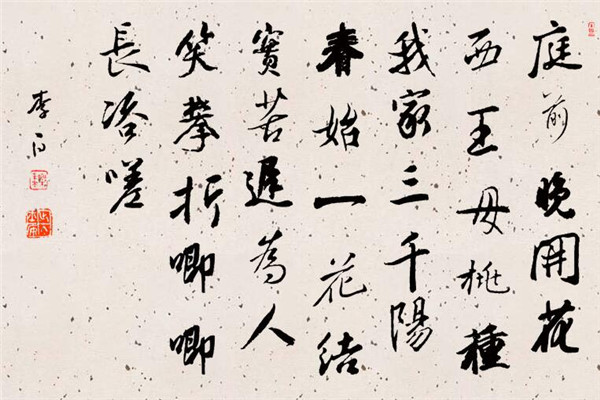 庭前晚開花
西王母桃種
我家三千陽
春始一花結
實苦遲為人
笑攀折唧唧
長咨嗟
李白